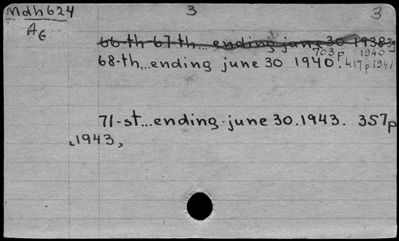 Mdh624 3 3
A6
66-th 67-th... ending june 30 1938
703p 1940
68-th... ending june 30 1940. 417p 1941
71-st... ending june 30. 1943. 357p
1943,